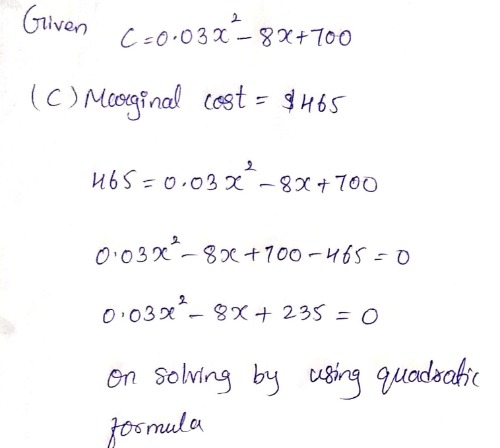 Given C = 0.03x² - 8x + 700
(C) Marginal cost = $465
465 = 0.03x² - 8x + 700
0.03x² - 8x + 700 - 465 = 0
0.03x² - 8x + 235 = 0
on solving by using quadratic
formula